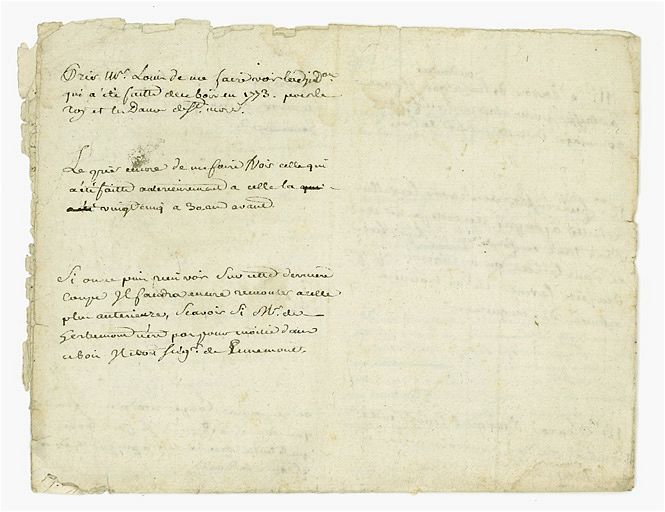 Prie Mr. Louis de me faire voir l'adjdon
qui a été faitte de ce bois en 1773. pour le
roy et la Dame de St. more.
Le prier encore de me faire Voir celle qui
a été faitte anterieurement a celle la qui
a été vingt cinq a 30 ans avant
Si on ne peut rien voir Sur cette derniere
coupe Il faudra encore remonter a celle
plus anterieure, Scavoir Si Mr. de
n'ere pas pour moitié dans
ce bois Il etoit Seigr. de